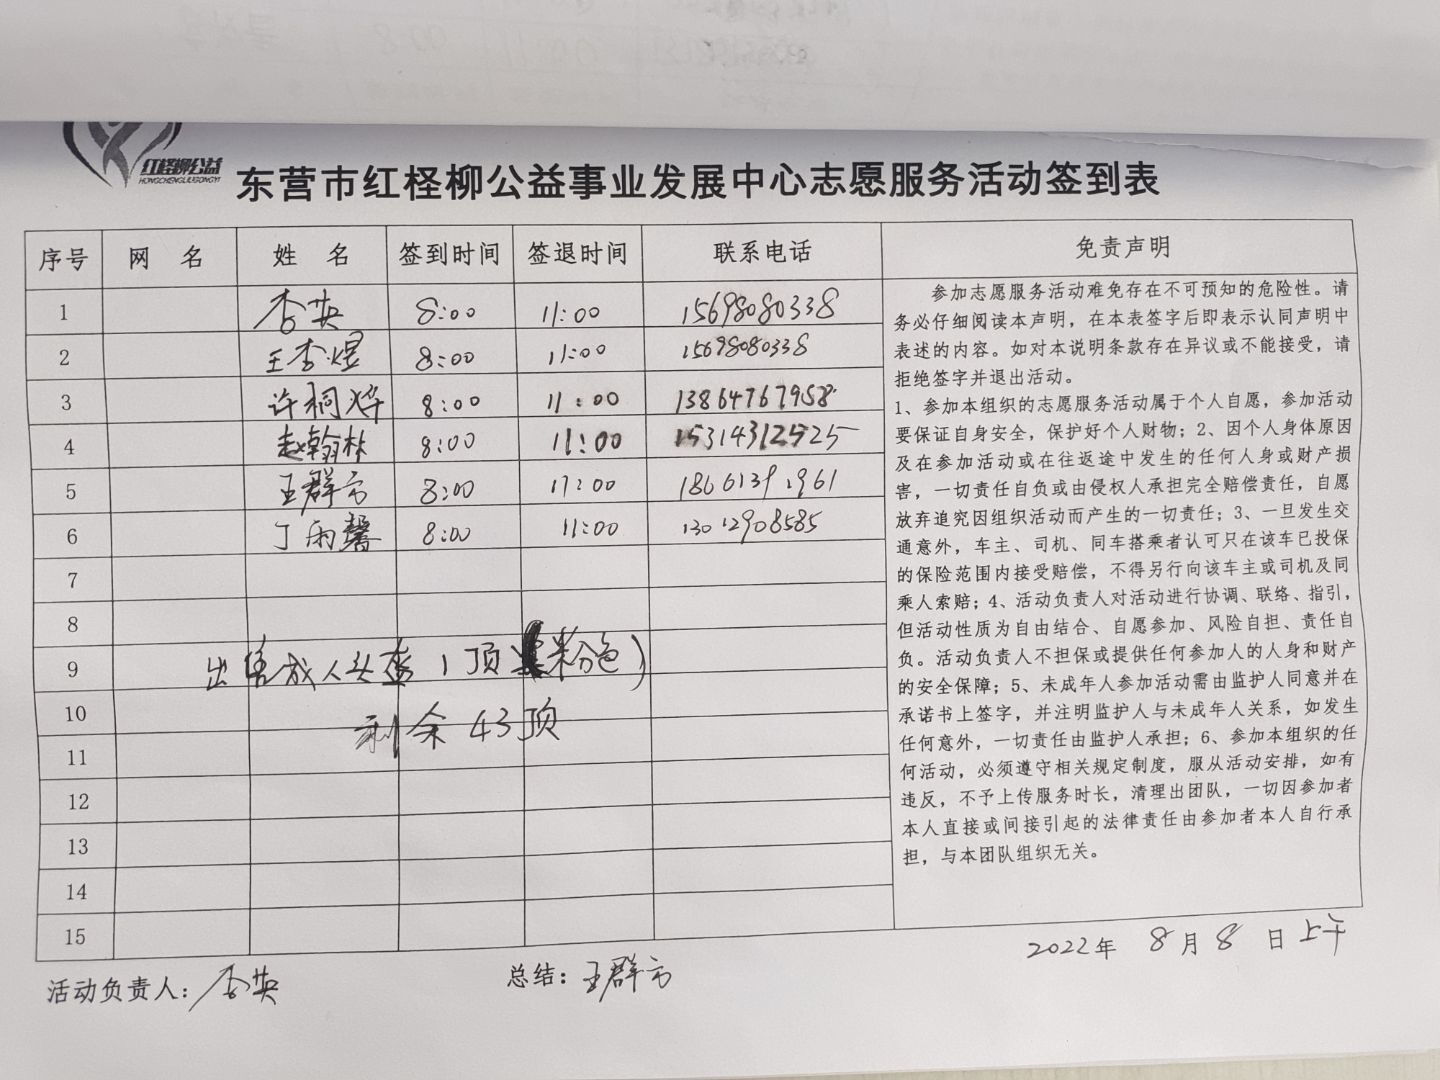 红柽柳公益
HONGCHENGLIUGONGYI
东营市红柽柳公益事业发展中心志愿服务活动签到表
序号 网 名 姓 名 签到时间 签退时间 联系电话 免责声明
1 李英 8:00 11:00 15698080338
2 王李煜 8:00 11:00 15698080338
3 许桐烨 8:00 11:00 13864767958
4 赵翰林 8:00 11:00 15314312525
5 王群方 8:00 11:00 18661391961
6 丁雨馨 8:00 11:00 13012908585
7
8
9 出售成人头盔1顶 粉色)
10 剩余43顶
11
12
13
14
15
参加志愿服务活动难免存在不可预知的危险性。请
务必仔细阅读本声明，在本表签字后即表示认同声明中
表述的内容。如对本说明条款存在异议或不能接受，请
拒绝签字并退出活动。
1、参加本组织的志愿服务活动属于个人自愿，参加活动
要保证自身安全，保护好个人财物；2、因个人身体原因
及在参加活动或在往返途中发生的任何人身或财产损
害，一切责任自负或由侵权人承担完全赔偿责任，自愿
放弃追究因组织活动而产生的一切责任；3、一旦发生交
通意外，车主、司机、同车搭乘者认可只在该车已投保
的保险范围内接受赔偿，不得另行向该车主或司机及同
乘人索赔；4、活动负责人对活动进行协调、联络、指引，
但活动性质为自由结合、自愿参加、风险自担、责任自
负。活动负责人不担保或提供任何参加人的人身和财产
的安全保障；5、未成年人参加活动需由监护人同意并在
承诺书上签字，并注明监护人与未成年人关系，如发生
任何意外，一切责任由监护人承担；6、参加本组织的任
何活动，必须遵守相关规定制度，服从活动安排，如有
违反，不予上传服务时长，清理出团队，一切因参加者
本人直接或间接引起的法律责任由参加者本人自行承
担，与本团队组织无关。
2022年 8月8 日上午
活动负责人：李英 总结：王群方